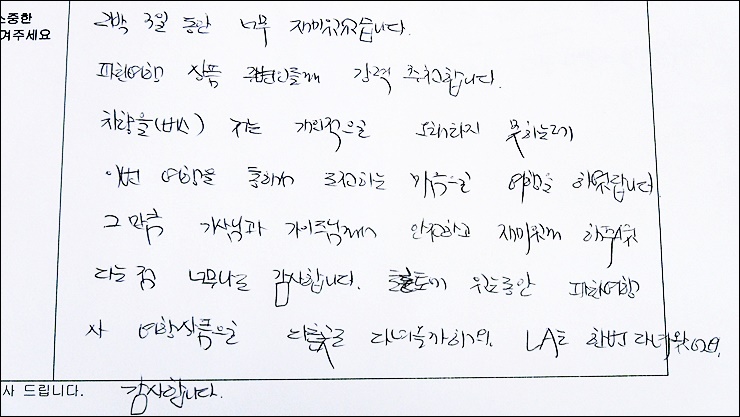 소중한
겨주세요
2박 3일 동안 너무 재미있었습니다.
파란여행 상품 주변인들께 강력 추천합니다.
차량을(버스) 저는 개인적으로 오래타지 못하는데
이번 여행을 통해서 도전하는 마음으로 여행을 하였답니다
그 만큼 기사님과 가이드님께서 안전하고 재미있게 해주셨
다는 점 너무나도 감사합니다. 파란여행
사 여행상품으로 다녀올까해요. LA도 한번 다녀왔어요.
사 드립니다. 감사합니다.